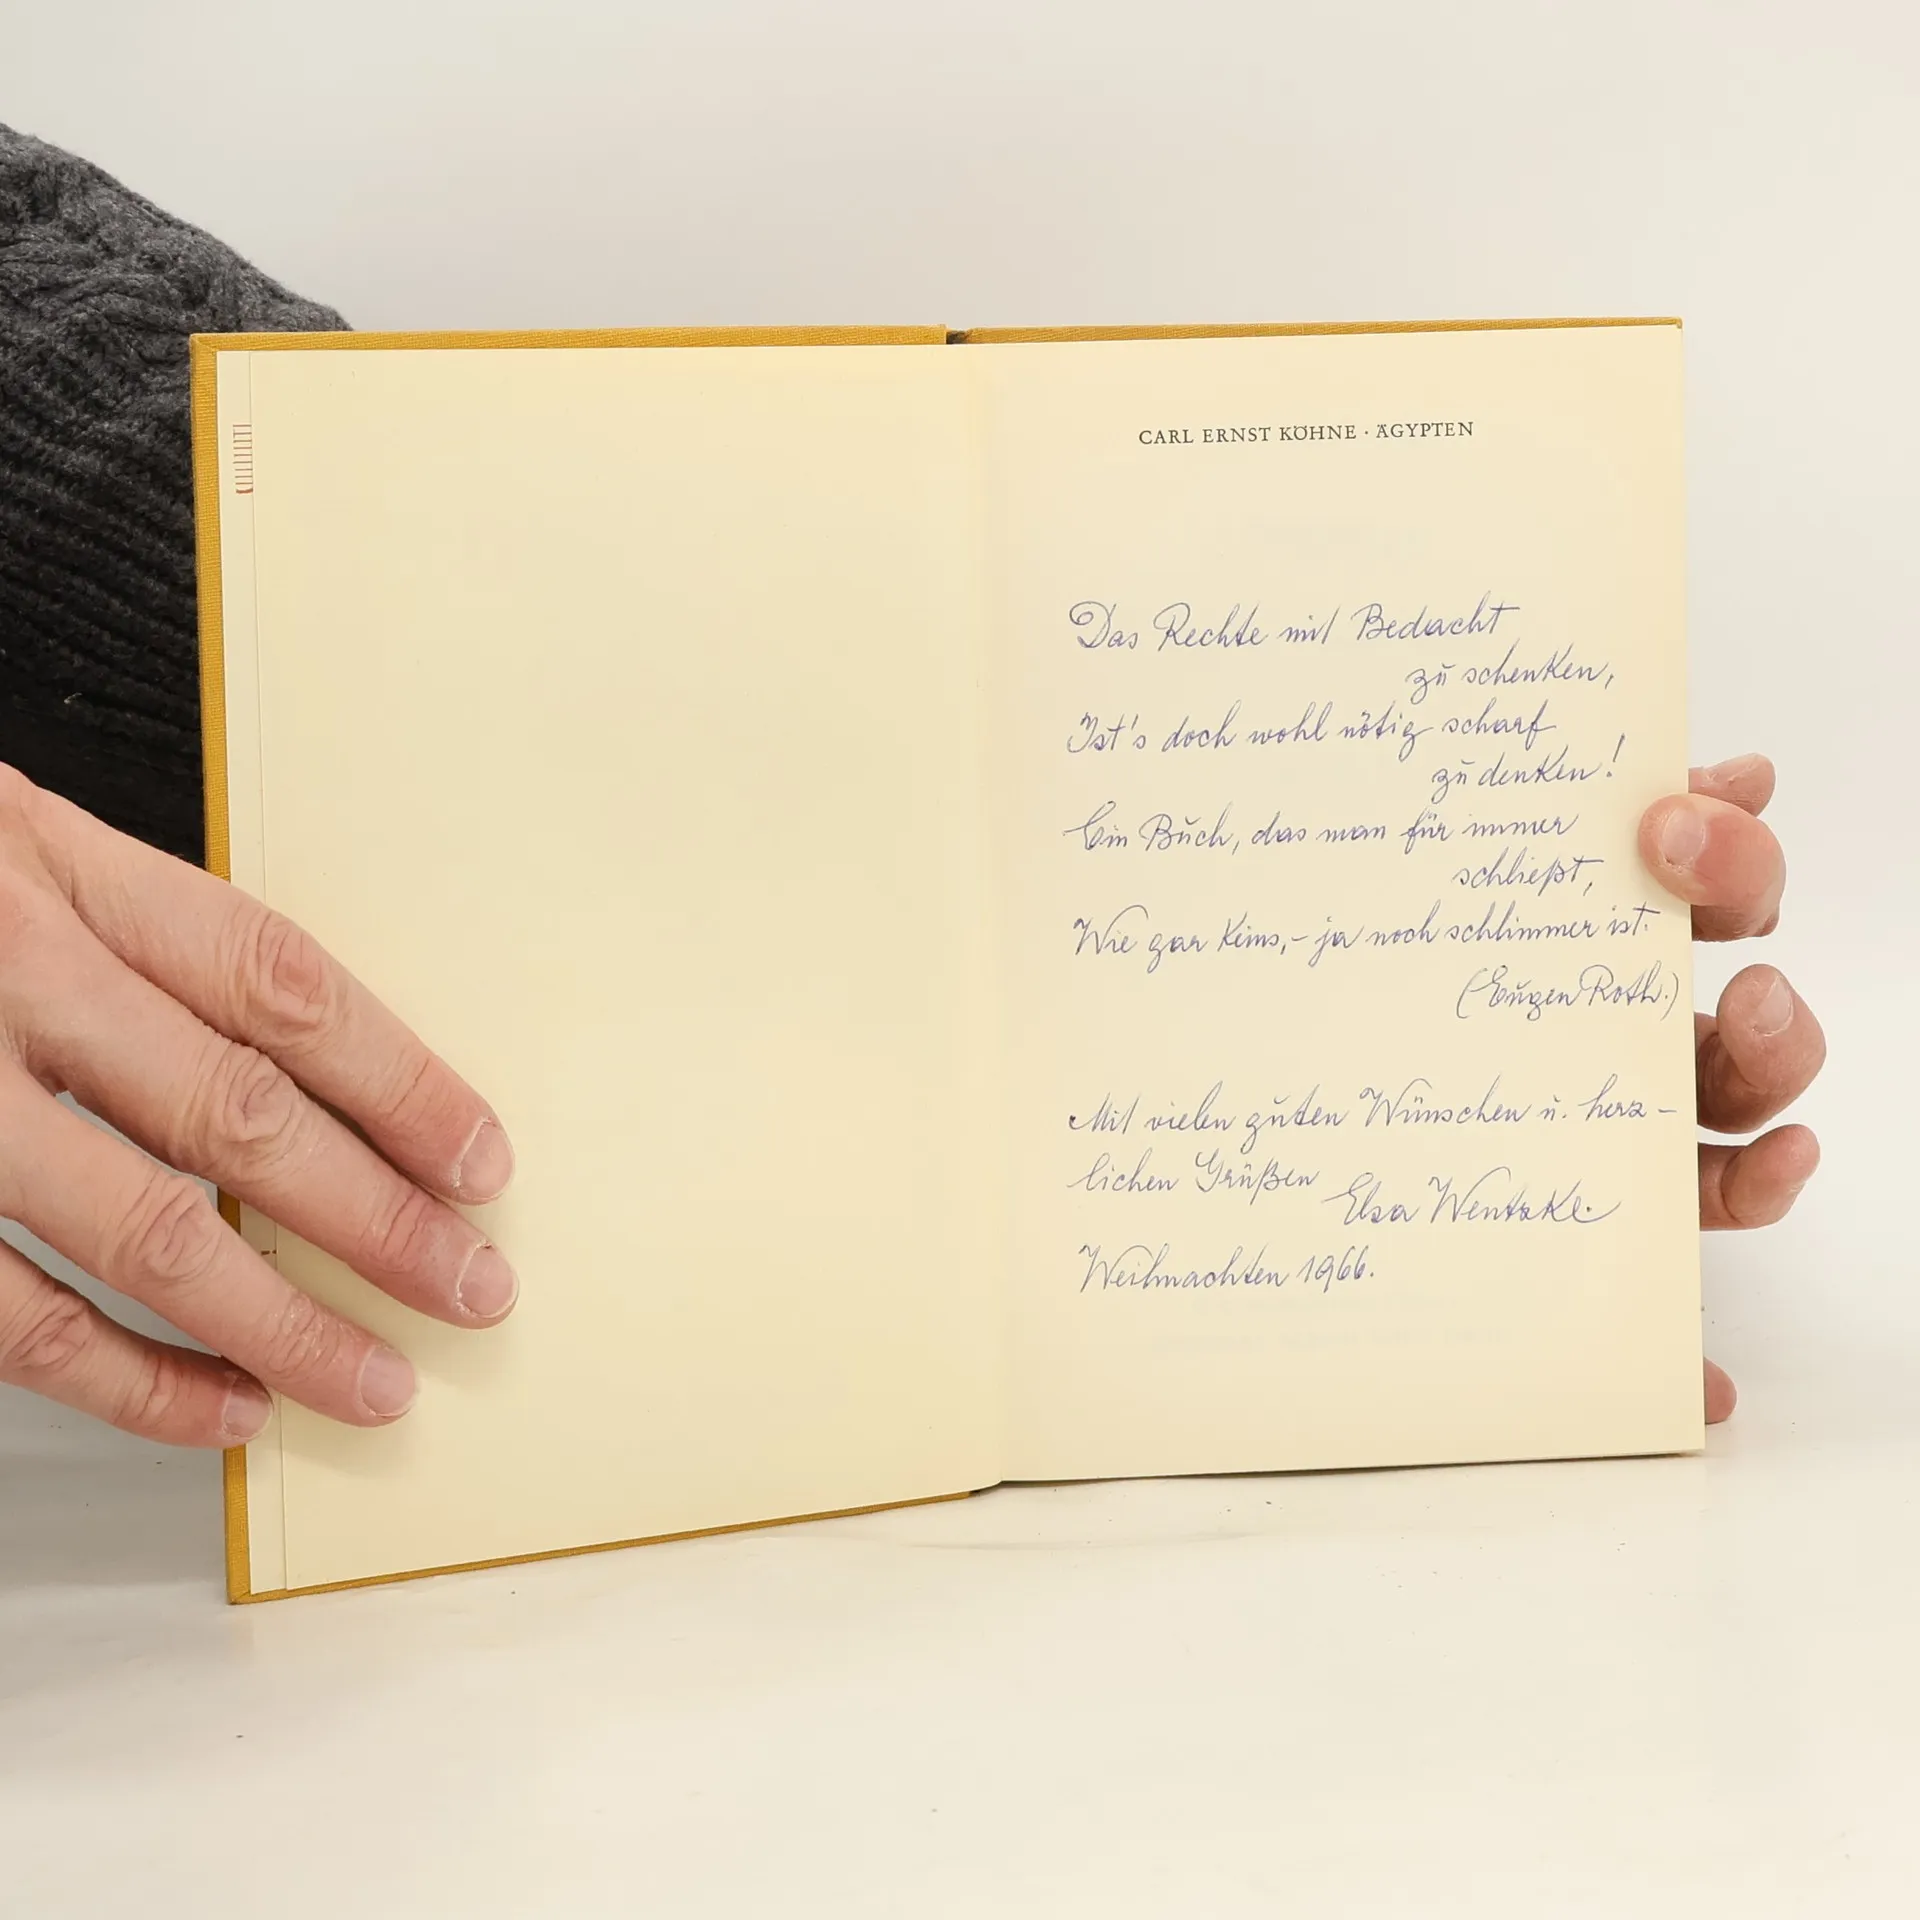 CARL ERNST KÖHNE · ÄGYPTEN
Das Rechte mit Bedacht
zu schenken,
Ist's doch wohl nötig scharf
zu denken!
Ein Buch, das man für immer
schließt,
Wie gar keins,- ja noch schlimmer ist.
(Eugen Roth.)
Mit vielen guten Wünschen u. herz-
lichen Grüßen
Elsa Wentzke.
Weihnachten 1966.